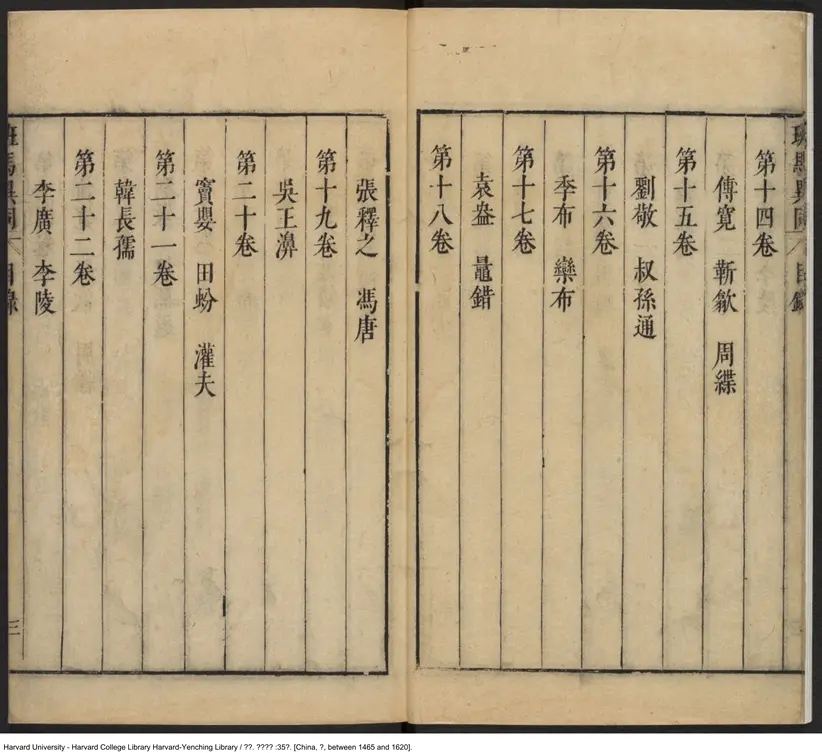 班馬異同 目錄
第十四卷
傅寬 靳歙 周緤
第十五卷
劉敬 叔孫通
第十六卷
季布 欒布
第十七卷
袁盎 鼂錯
第十八卷
張釋之 馮唐
第十九卷
吳王濞
第二十卷
竇嬰 田蚡 灌夫
第二十一卷
韓長孺
第二十二卷
李廣 李陵
班馬異同 目錄 三
Harvard University - Harvard College Library Harvard-Yenching Library / ??. ???? :35?. [China, ?, between 1465 and 1620].